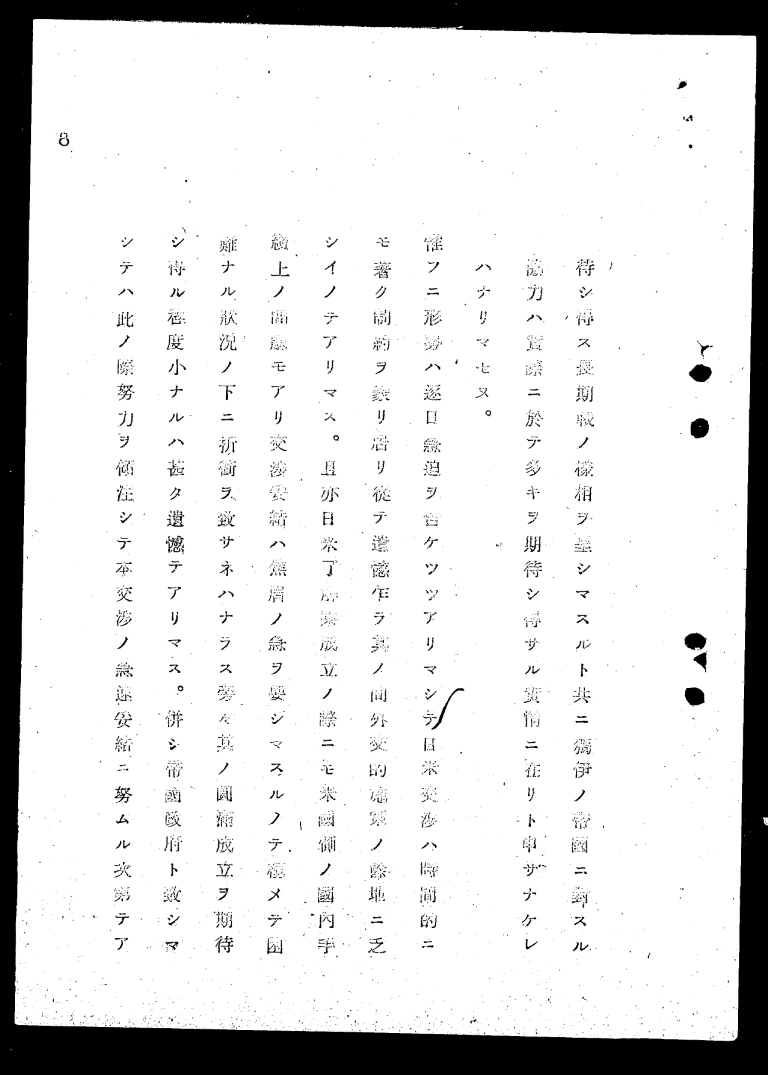 待シ得ス長期戰ノ樣相ヲ呈シマスルト共ニ獨伊ノ帝國ニ對スル
協力ハ實際ニ於テ多キヲ期待シ得サル實情ニ在リト申サナケレ
ハナリマセヌ。
惟フニ形勢ハ逐日急迫ヲ告ケツツアリマシテ日米交涉ハ時間的ニ
モ著ク制約ヲ蒙リ居リ從テ遺憾乍ラ其ノ間外交的施策ノ餘地ニ乏
シイノテアリマス。且亦日米了解案成立ノ際ニモ米國側ノ國內手
續上ノ問題モアリ交涉妥結ハ焦眉ノ急ヲ要シマスルノテ極メテ困
難ナル狀況ノ下ニ折衝ヲ致サネハナラス旁々其ノ圓滿成立ヲ期待
シ得ル程度小ナルハ甚タ遺憾テアリマス。併シ帝國政府ト致シマ
シテハ此ノ際努力ヲ傾注シテ本交涉ノ急速妥結ニ努ムル次第テア
8